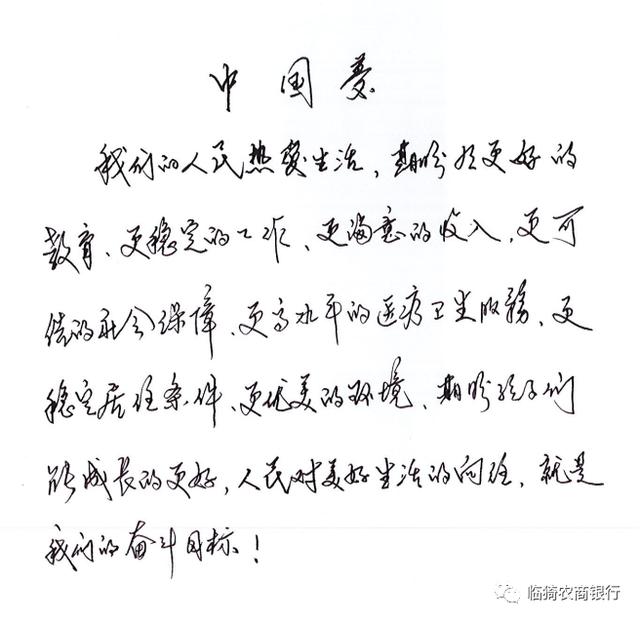 中国夢
我们的人民热爱生活、期盼有更好的
教育、更稳定的工作、更满意的收入、更可
信的社会保障、更高水平的医疗卫生服务、更
稳定居住条件、更优美的环境、期盼孩子们
能成长的更好，人民对美好生活的向往，就是
我们的奋斗目标！
临猗农商银行